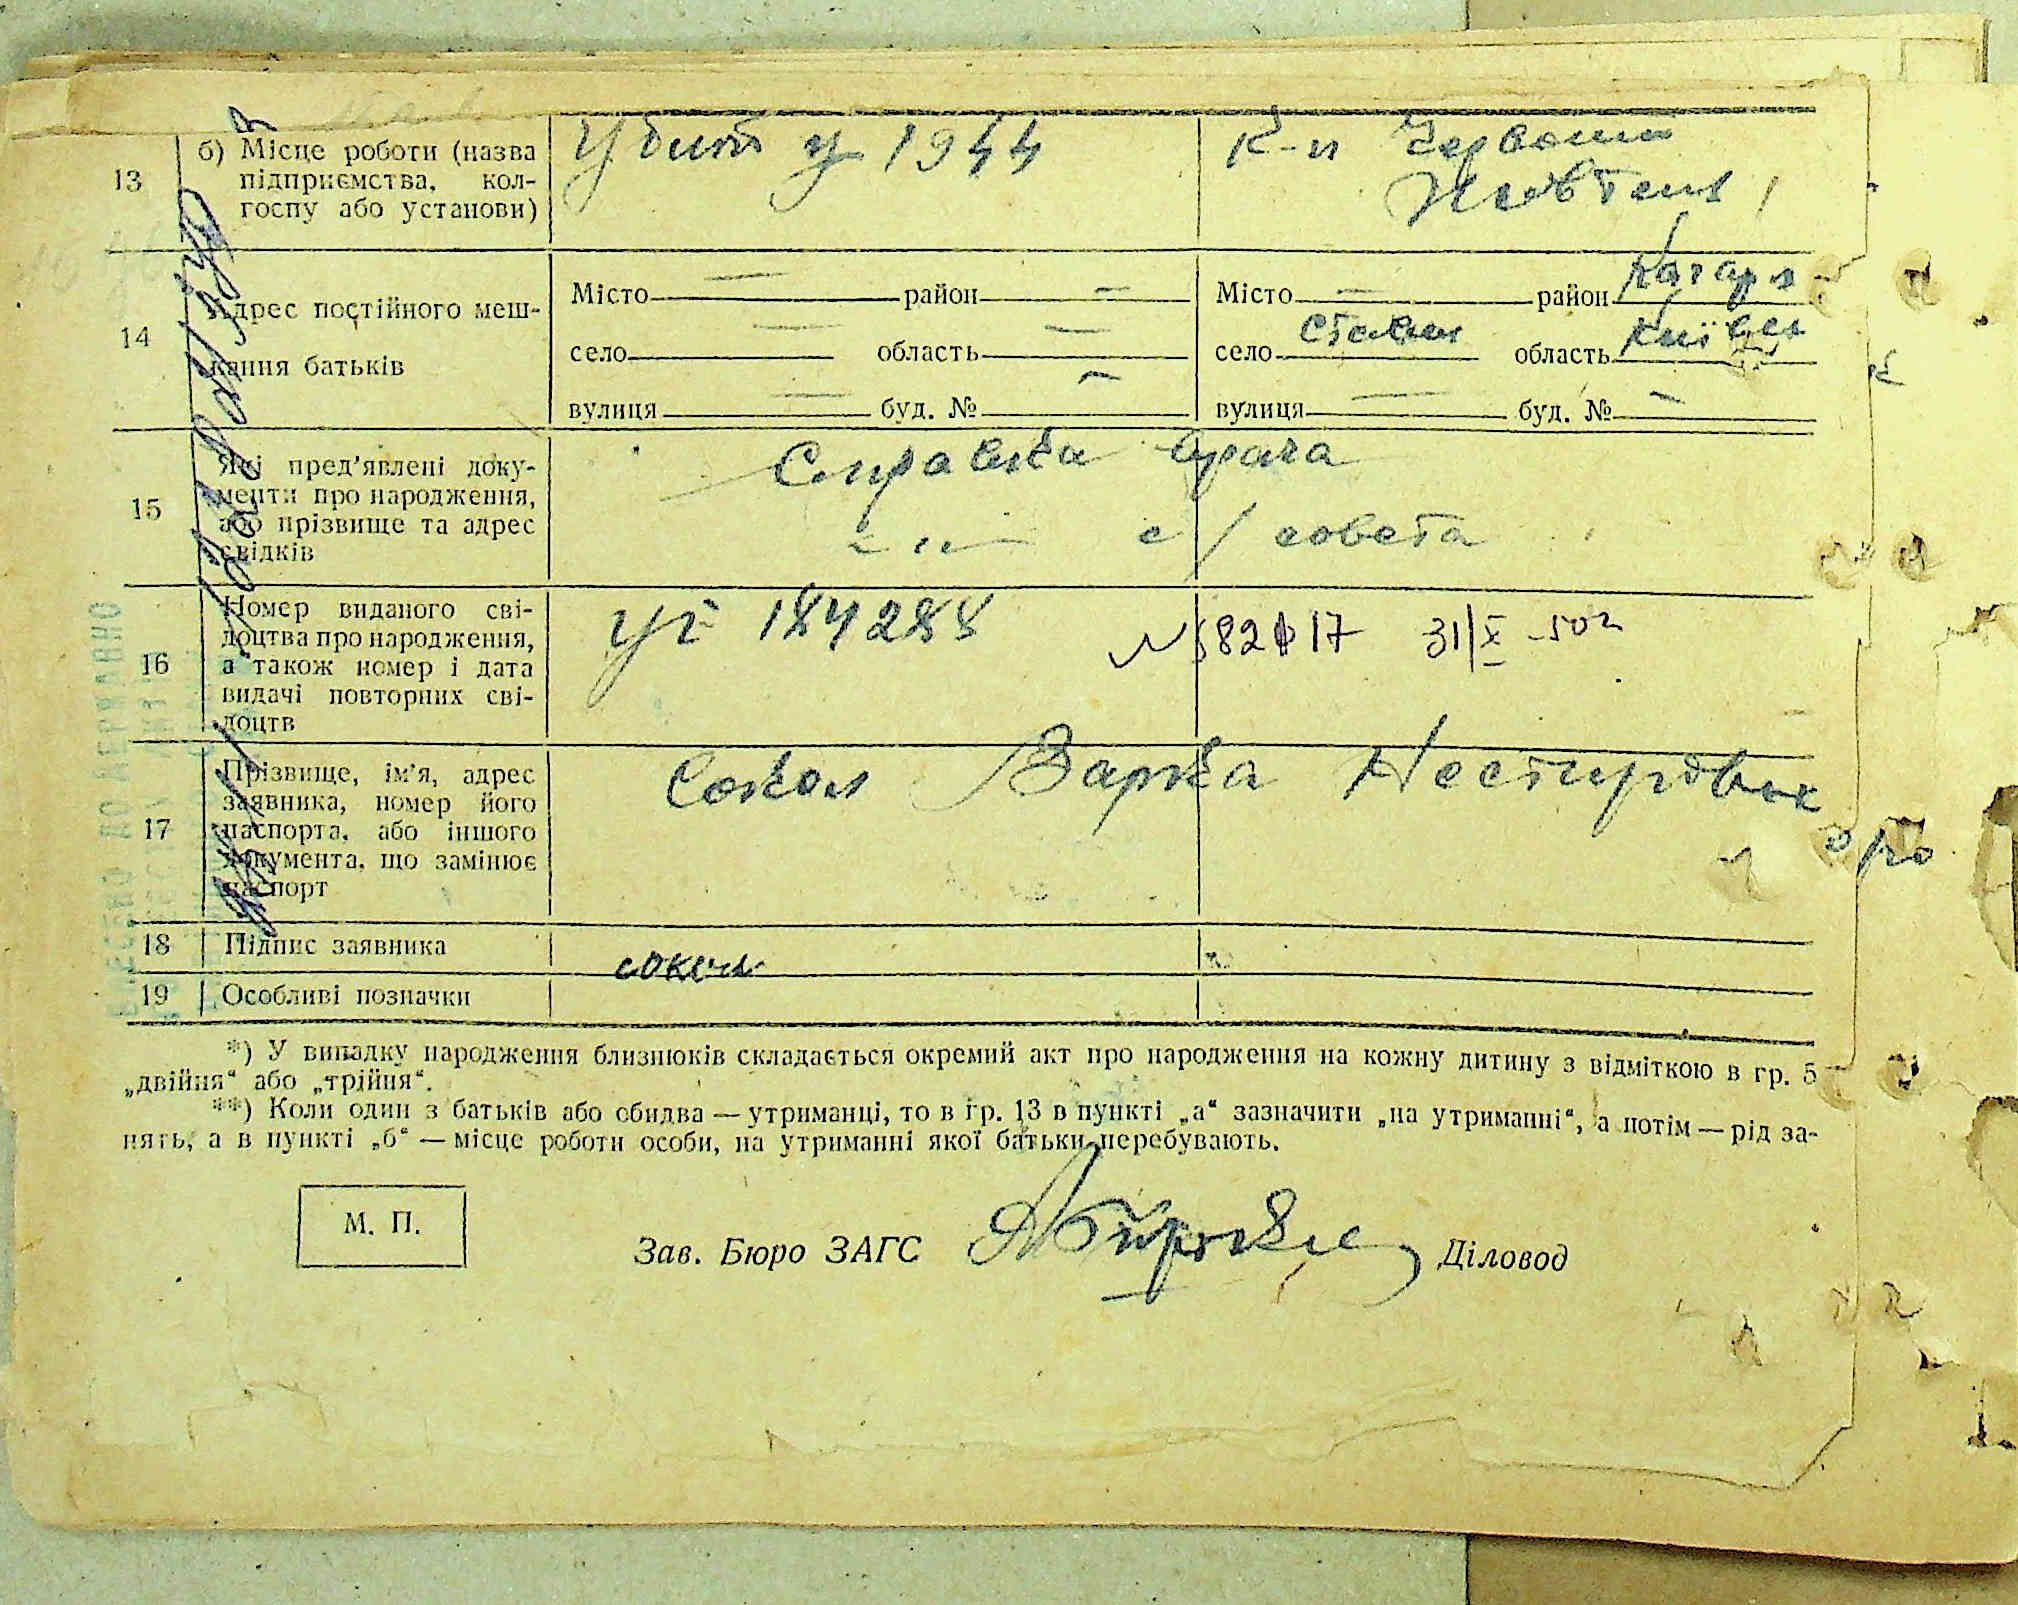 13 б) Місце роботи (назва підприємства, колгоспу або установи)
Убит у 1944
К-п Червоний
Жовтень
14 Адрес постійного мешкання батьків
Місто — район —
село — область —
вулиця — буд. № —
Місто — район Кагарл
село Стави область Київськ
вулиця — буд. № —
15 Які пред'явлені документи про народження, або прізвище та адрес свідків
Справка врача
— " — с/совета
16 Номер виданого свідоцтва про народження, а також номер і дата видачі повторних свідоцтв
184288
31/X -50 г
17 Прізвище, ім'я, адрес заявника, номер його паспорта, або іншого документа, що замінює паспорт
Сокол Варка
18 Підпис заявника
сокол
19 Особливі позначки
*) У випадку народження близнюків складається окремий акт про народження на кожну дитину з відміткою в гр. 5
„двійня“ або „трійня“.
**) Коли один з батьків або обидва — утриманці, то в гр. 13 в пункті „а“ зазначити „на утриманні“, а потім — рід за-
нять, а в пункті „б“ — місце роботи особи, на утриманні якої батьки перебувають.
М. П.
Зав. Бюро ЗАГС
Діловод